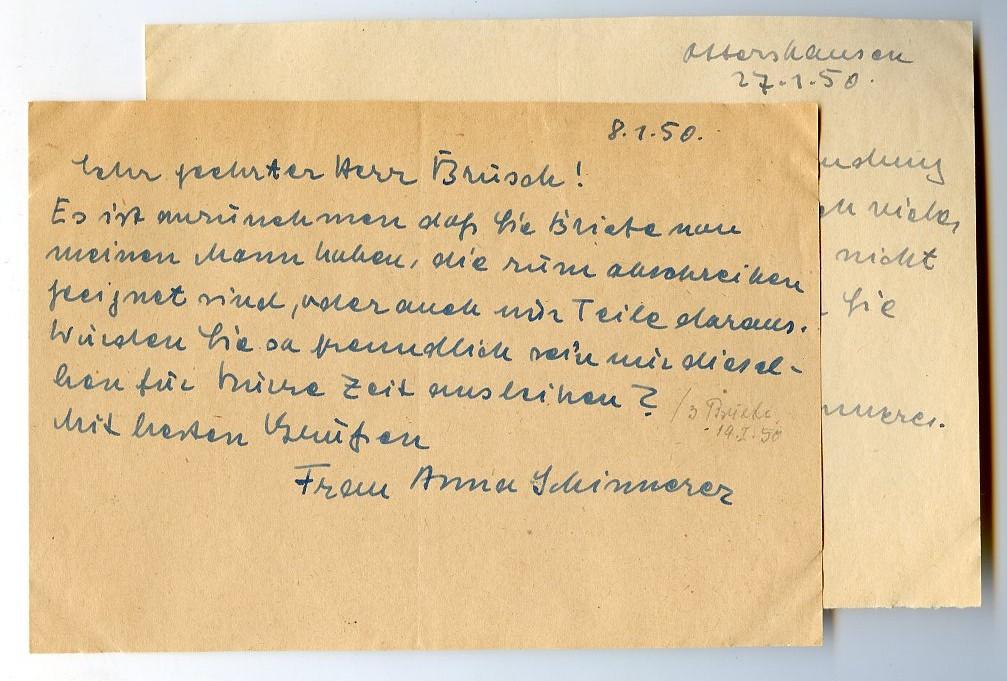 Ottershausen
27.1.50.
8.1.50.
Sehr geehrter Herr Brüsch!
Es ist anzunehmen daß Sie Briefe von
meinen Mann haben, die zum abschreiben
geeignet sind, oder auch nur Teile daraus.
Würden Sie so freundlich sein mir diesel-
ben für kurze Zeit ausleihen?
/ 3 Briefe
19.I.50
Mit besten Grüßen
Frau Anna Schinnerer
ndung
vieles
nicht
Sie
nnerer.